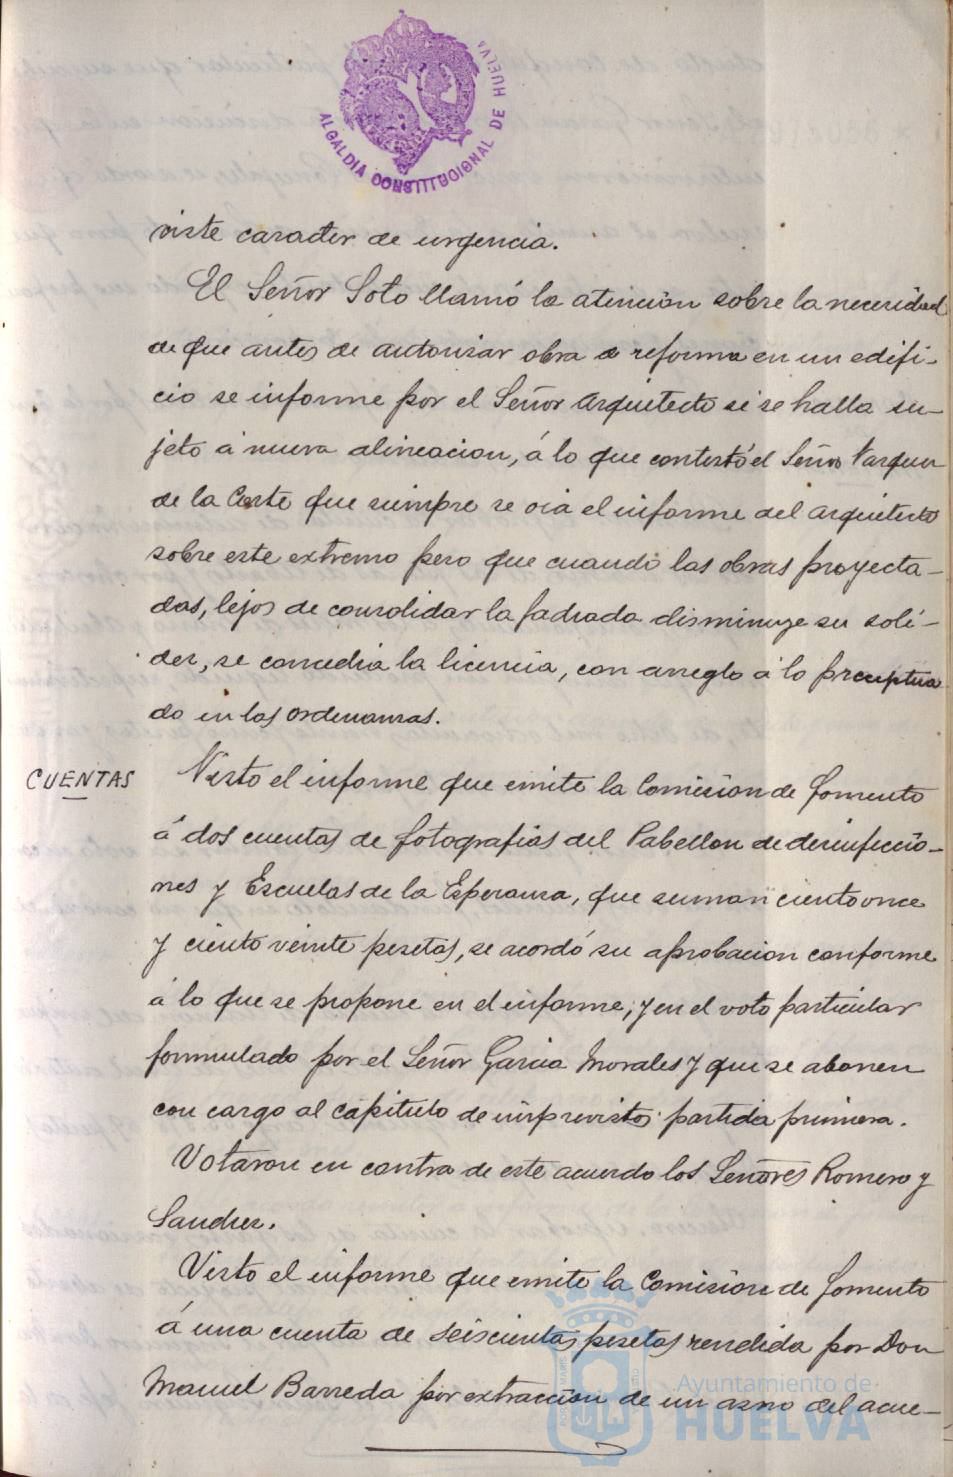 ALCALDIA CONSTITUCIONAL DE HUELVA
viste caracter de urgencia.
El Señor Soto llamó la atencion sobre la necesidad
de que antes de autorizar obra de reforma en un edifi-
cio se informe por el Señor Arquitecto si se halla su-
jeto á nueva alineacion, á lo que contestó el Señor Vazquez
de la Corte que siempre se oia el informe del arquitecto
sobre este extremo pero que cuando las obras proyecta-
das, lejos de consolidar la fachada disminuye su soli-
dez, se concedia la licencia, con arreglo á lo preceptua
do en las ordenanzas.
CUENTAS
Visto el informe que emite la Comision de Fomento
á dos cuentas de fotografias del Pabellon de desinfeccio-
nes y Escuelas de la Esperanza, que suman ciento once
y ciento veinte pesetas, se acordó su aprobacion conforme
á lo que se propone en el informe, y en el voto particular
formulado por el Señor Garcia Morales y que se abonen
con cargo al capitulo de imprevistos partida primera.
Votaron en contra de este acuerdo los Señores Romero y
Sanchez.
Visto el informe que emite la Comision de Fomento
á una cuenta de seiscientas pesetas rendida por Don
Manuel Barreda por extraccion de un asno del acue-
Ayuntamiento de
HUELVA